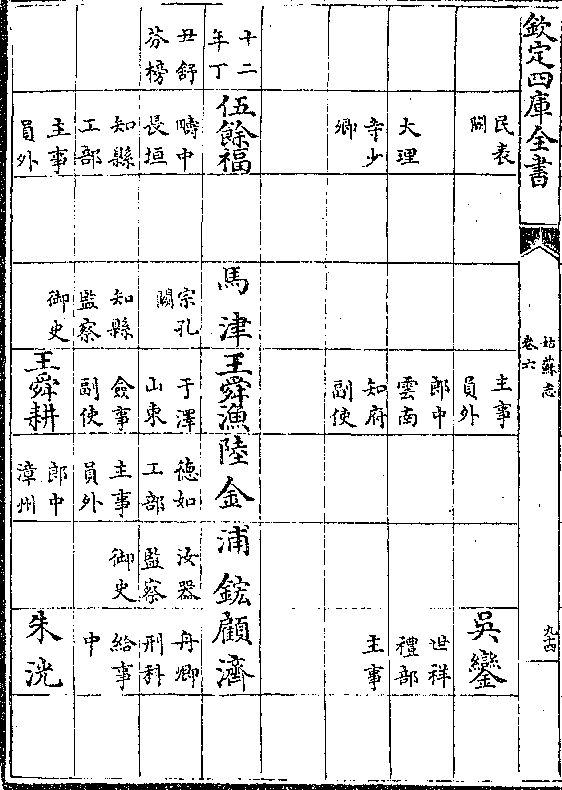 欽定四庫全書
姑蘇志
卷六
九十四
民表
闕
主事
員外
吳鑾
大理
郎中
雲南
世祥
禮部
寺少
卿
知府
副使
主事
十二
年丁
伍餘福
馬津
王舜漁
陸金
浦鋐
顧濟
丑舒
芬榜
疇中
長垣
宗孔
闕
于澤
山東
德如
工部
汝器
監察
舟卿
刑科
知縣
工部
知縣
監察
僉事
副使
主事
員外
御史
給事
中
主事
員外
御史
王舜耕
郎中
漳州
朱洸